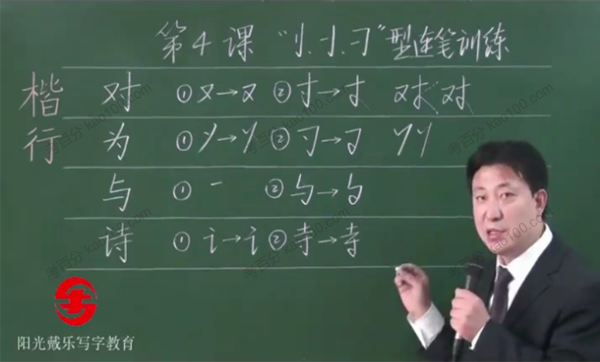 第4课 "小、小、刁"型连笔训练
楷行
对 ①又→又 ②寸→寸 对 对
为 ①丷→丷 ②
与 ①一 ②与→与
诗 ①讠→讠 ②寺→寺
阳光戴乐写字教育
考百分 kao100.com